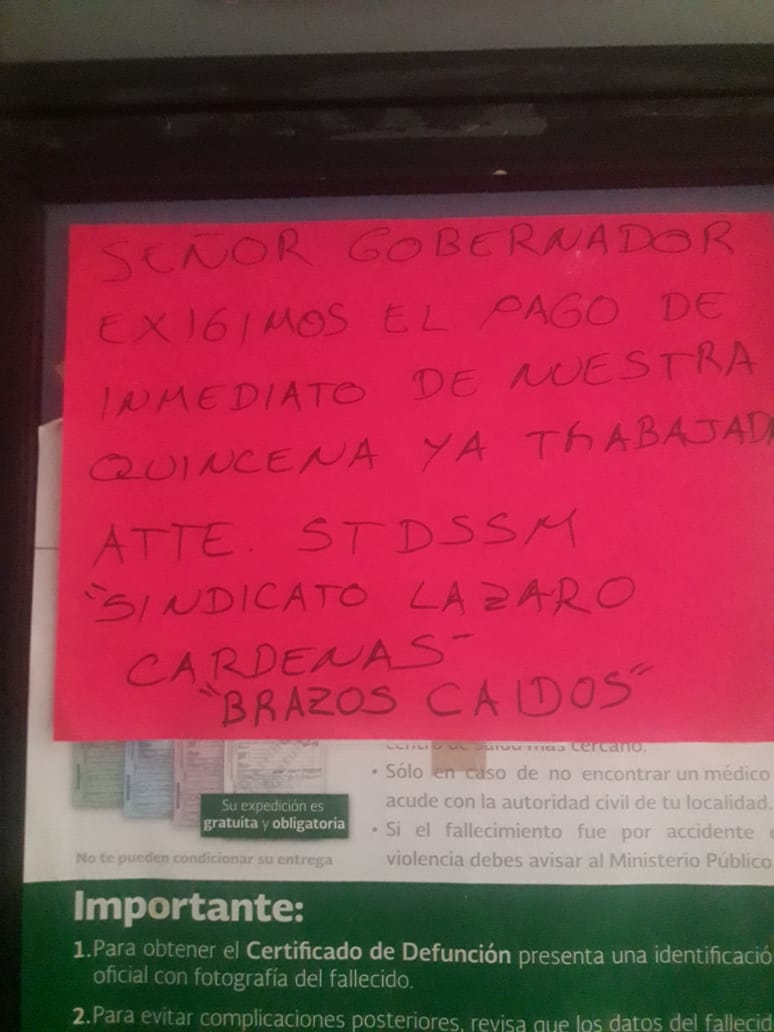 SEÑOR GOBERNADOR
EXIGIMOS EL PAGO DE
INMEDIATO DE NUESTRA
QUINCENA YA TRABAJADA
ATTE. STDSSM
"SINDICATO LAZARO
CARDENAS"
"BRAZOS CAIDOS"
centro de salud más cercano.
• Sólo en caso de no encontrar un médico
acude con la autoridad civil de tu localidad.
• Si el fallecimiento fue por accidente
violencia debes avisar al Ministerio Público
Su expedición es
gratuita y obligatoria
No te pueden condicionar su entrega
Importante:
1.Para obtener el Certificado de Defunción presenta una identificació
oficial con fotografía del fallecido.
2.Para evitar complicaciones posteriores, revisa que los datos del fallecid